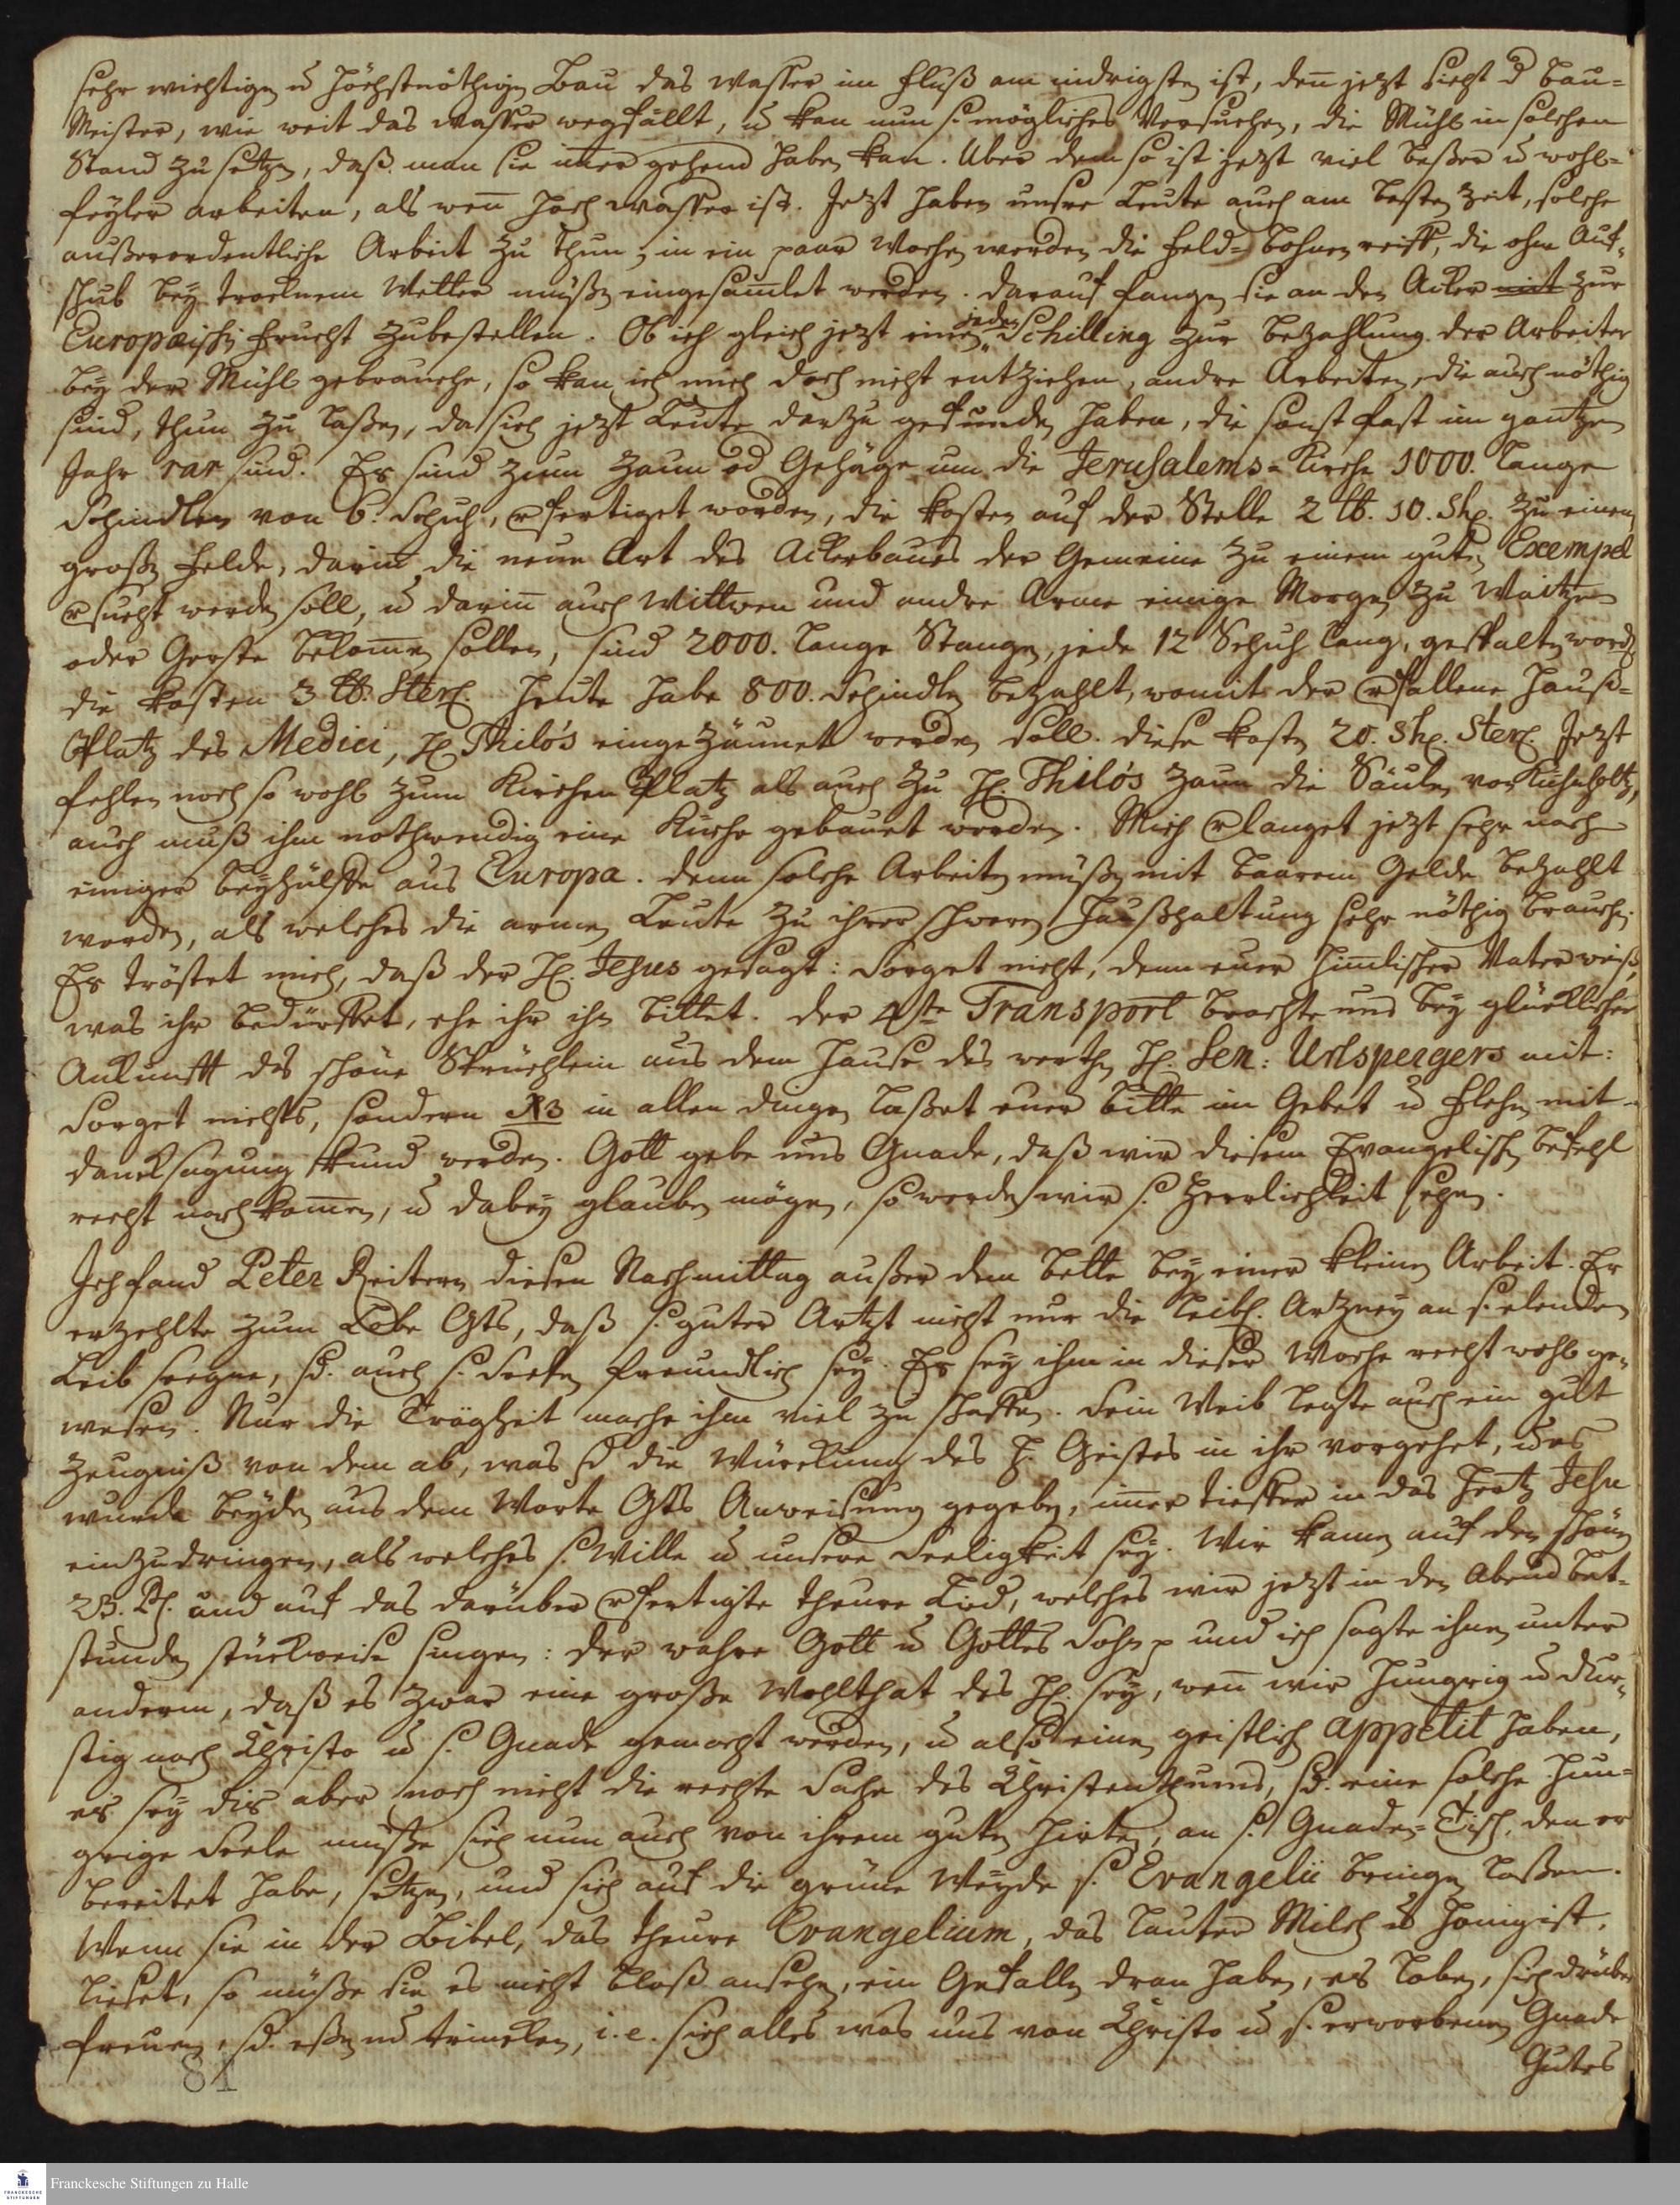 sehr wichtigen u. höchstnöthigen Bau das Wasser im Fluß am niedrigsten ist, den jezt sieht d. Bau=
Meister, wie weit das Wasser wegfällt, u. kan nun s. mögliches Versuchen, die Mühl in solchen
Stand zu setzen, daß man sie imer gehend haben kan. Uber dem so ist jezt viel beßer u. wohl=
feyler arbeiten, als wen hoch Wasser ist. Jezt haben unsre Leute auch am besten Zeit, solche
außerordentliche Arbeit zu thun; in ein paar Wochen werden die Feld=Bohnen reiff, die ohne Auf=
schub bey trocknem Wetter müßen eingesamlet werden. Darauf fangen sie an den Acker mit zur
Europæischen Frucht zubestellen. Ob ich gleich jezt einen jeden Schilling zur Bezahlung der Arbeiter
bey der Mühl gebrauche, so kan ich mich doch nicht entziehen, andre Arbeiten, die auch nöthig
sind, thun zu laßen, da sich jezt Leute darzu gefunden haben, die sonst fast im gantzen
Jahr rar sind. Es sind zum Zaun od. Gehäge um die Jerusalems=Kirche 1000. lange
Schindlen von 6. Schuh, verfertiget worden, die kosten auf der Stelle 2 lb. 10. Sh. Zu einem
großen Felde, darin die neue Art des Ackerbaues der Gemeine zu einem guten Exempel
versucht werden soll, u. darin auch Wittwen und andre Arme einige Morgen zu Waitzen
oder Gerste bekomen sollen, sind 2000. lange Stangen, jede 12 Schuh lang, gespalten worden
die kosten 3 lb. Sterl. Heute habe 800. Schindlen bezahlt, womit der verfallene Hauß=
Platz des Medici, H. Thilo's eingezäunet werden soll. Diese kosten 20. Sh. Sterl. Jezt
fehlen noch so wohl zum Kirchen Platz als auch zu H. Thilo's Zaun die Säulen von Kiehnholtz,
auch muß ihm nothwendig eine Küche gebauet werden. Mich verlanget jezt sehr nach
einiger Beyhülffe aus Europa. Denn solche Arbeiten müßen mit baarem Gelde bezahlt
werden, als welches die armen Leute zu ihrer schweren Haußhaltung sehr nöthig brauchen.
Es tröstet mich, daß der H. Jesus gesagt: Sorget nicht, denn euer himlischer Vater weiß,
was ihr bedürffet, ehe ihr ihn bittet. Der 4te Transport brachte uns bey glücklicher
Ankunfft das schöne Sprüchlein aus dem Hause des werthen H. Sen: Urlspergers mit:
Sorget nichts, sondern in allen Dingen laßet eure Bitte im Gebet u. Flehen mit
Dancksagung kund werden. Gott gebe uns Gnade, daß wir diesem Evangelischen Befehl
recht nachkomen, u. dabey glauben mögen, so werden wir s. Herrlichkeit sehen.
Ich fand Peter Reitern diesen Nachmittag außer dem Bette bey einer kleinen Arbeit. Er
erzehlte zum Lobe Gts, daß s. guter Artzt nicht nur die leibl. Artzney an s. elenden
Leib seegne, sd. auch s. Seelen freundlich sey. Es sey ihm in dieser Woche recht wohl ge=
wesen. Nur die Trägheit mache ihm viel zu schaffen. Sein Weib legte auch ein gut
Zeugniß von dem ab, was sd die Würckung des H. Geistes in ihr vorgehet, u. es
wurde beyden aus dem Worte Gts Anweisung gegeben, imer tieffer in das Hertz Jesu
einzudringen, als welches s. Wille u. unsere Seeligkeit sey. Wir kamen auf den schönen
23. Ps. und auf das darüber verfertigte theure Lied, welches wir jezt in den Abend Bet=
stunden stückweise singen: Der wahre Gott u. Gottes Sohn p und ich sagte ihnen unter
anderm, daß es zwar eine große Wohlthat des H. sey, wen wir hungrig u. dur=
stig nach Christo u. s. Gnade gemacht werden, u. also einen geistlich appetit haben,
es sey dis aber noch nicht die rechte Sache des Christenthums, sd. eine solche hun=
grige Seele müße sich nun auch von ihrem guten Hirten, an s. Gnaden=Tisch, den er
bereitet habe, setzen, und sich auf die grüne Weyde s. Evangelii bringen laßen.
Wenn sie in der Bibel, das theure Evangelium, das lauter Milch u. Honig ist,
lieset, so müße sie es nicht bloß ansehen, ein Gefallen dran haben, es loben, sich drüber
freuen, sd. eßen u. trincken, i.e. sich alles was uns von Christo u. s. erworbenen Gnade
Gutes
81
Franckesche Stiftungen zu Halle